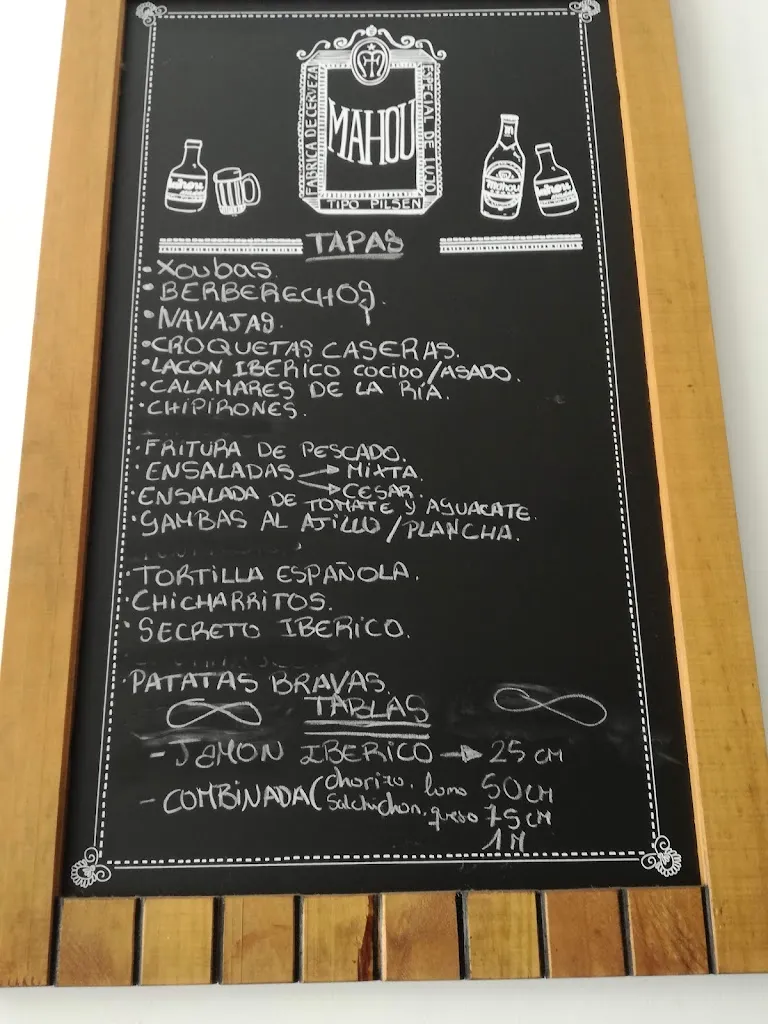 FABRICA DE CERVEZA
ESPECIAL DE LUJO
MAHOU
TIPO PILSEN
mahou
mahou
mahou
TAPAS
• Xoubas.
• BERBERECHOS.
• NAVAJAS.
• CROQUETAS CASERAS.
• LACON IBERICO COCIDO/ASADO.
• CALAMARES DE LA RÍA.
• CHIPIRONES.
• FRITURA DE PESCADO.
• ENSALADAS → MIXTA.
→ CESAR.
• ENSALADA DE TOMATE Y AGUACATE.
• GAMBAS AL AJILLO/PLANCHA.
• TORTILLA ESPAÑOLA.
• CHICHARRITOS.
• SECRETO IBERICO.
• PATATAS BRAVAS.
TABLAS
- JAMON IBERICO → 25 CM
- COMBINADA (chorizo, lomo 50CM
Salchichon, queso 75 CM
1 M